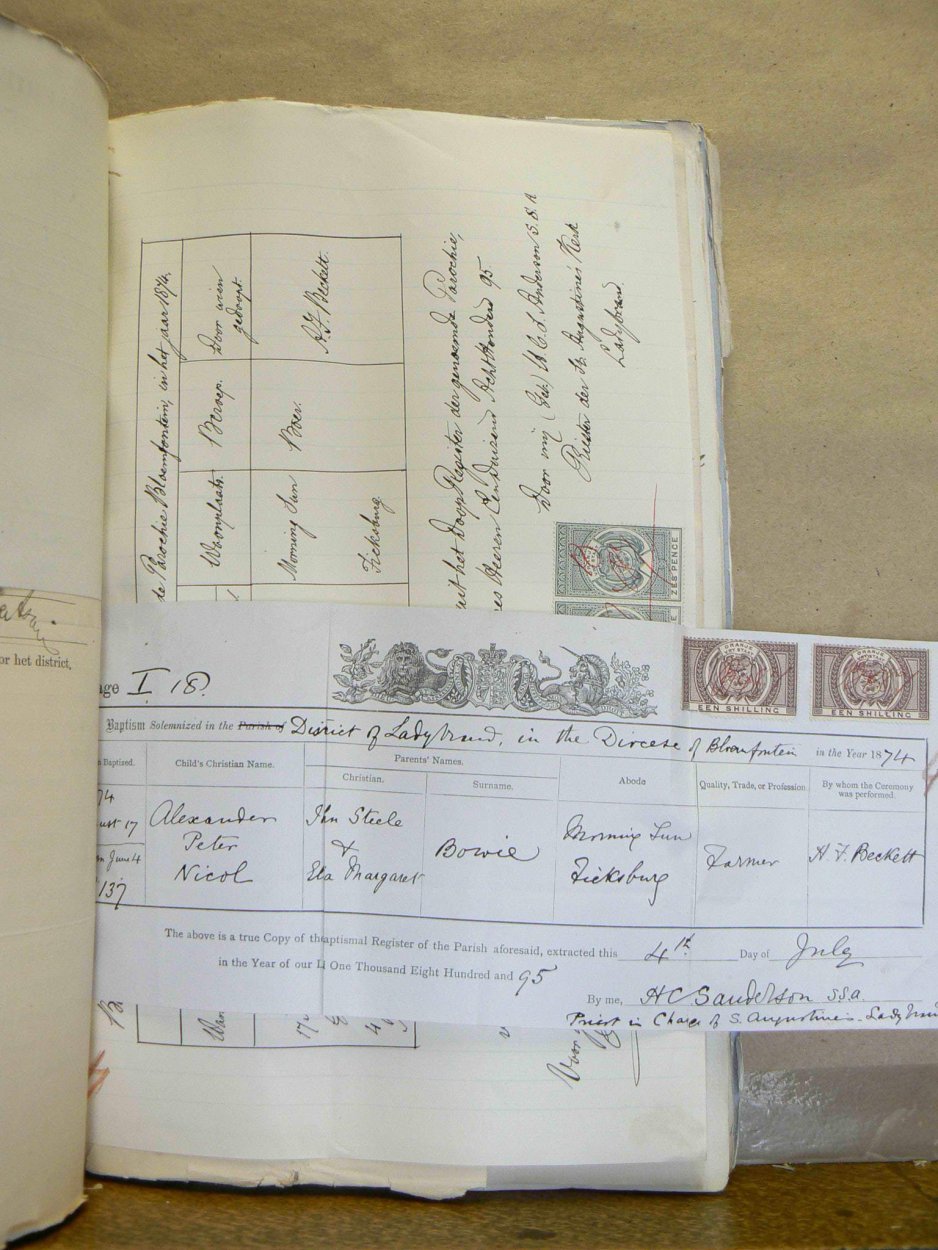 de Parochie Bloemfontein, in het jaar 1874.
Woonplaats. Beroep. Door wien
gedoopt.
Morning Sun Boer. A. F. Beckett.
Ficksburg.
uit het Doop Register der genoemde Parochie,
Heeren Een Duizend Acht Honderd 95
Door mij (Get) H C S. Anderson S.S.A
Priester der St. Augustine's Kerk
Ladybrand.
ZES PENCE
or het district,
age I 18.
ORANJE ORANJE
VRY STAAT VRY STAAT
EEN SHILLING EEN SHILLING
Baptism Solemnized in the Parish of District of Ladybrand, in the Diocese of Bloemfontein in the Year 1874
n Baptised. Child's Christian Name. Parents' Names. Abode Quality, Trade, or Profession By whom the Ceremony
was performed.
Christian. Surname.
74
ust 17 Alexander Jhn Steele Morning Sun
Peter & Bowie Farmer A. F. Beckett
n June 4 Nicol Ela Margaret Ficksburg
137
The above is a true Copy of th aptismal Register of the Parish aforesaid, extracted this 4th Day of July
in the Year of our L One Thousand Eight Hundred and 95
By me, H C Sanderson S.S.A.
Priest in Charge of S. Augustines - Ladybrand
Voor